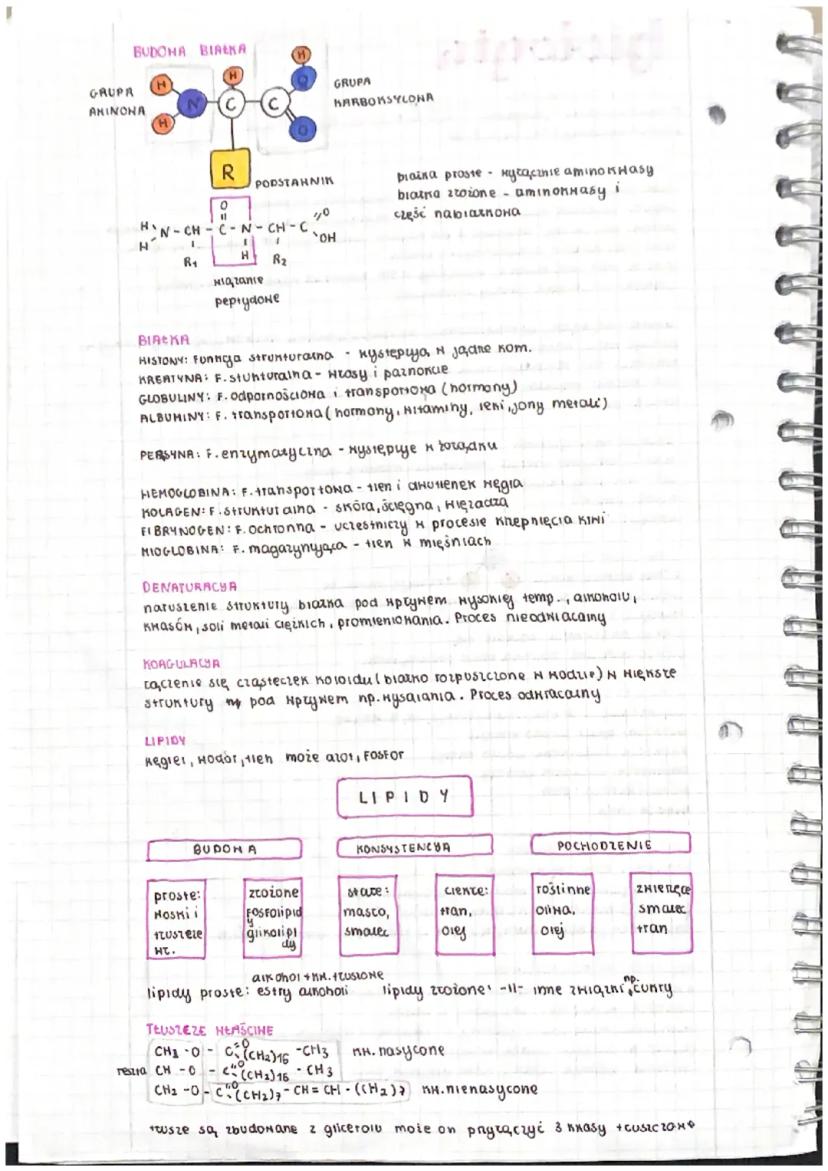 BUDOWA BIAŁKA
GRUPA AMINOWA
H
H
N
H
C
C
H
O
O
R
GRUPA KARBOKSYLOWA
PODSTAWNIK
białka proste - wyłącznie aminokwasy
białka złożone - aminokwasy i
część niebiałkowa
O
H N - CH - C - N - CH - C O
H OH
R1 H R2
wiązanie
peptydowe
BIAŁKA
HISTONY: Funkcja strukturalna - występują w jądrze kom.
KREATYNA: F. stukturalna - włosy i paznokcie
GLOBULINY: F. odpornościowa i transportowa (hormony)
ALBUMINY: F. transportowa (hormony, witaminy, leki, jony metali)
PEPSYNA: F. enzymatyczna - występuje w żołądku
HEMOGLOBINA: F. transportowa - tlen i dwutlenek węgla
KOLAGEN: F. strukturalna - skóra, ścięgna, więzadła
FIBRYNOGEN: F. ochronna - uczestniczy w procesie krzepnięcia krwi
MIOGLOBINA: F. magazynująca - tlen w mięśniach
DENATURACJA
naruszenie struktury białka pod wpływem wysokiej temp., alkoholu,
kwasów, soli metali ciężkich, promieniowania. Proces nieodwracalny
KOAGULACJA
łączenie się cząsteczek koloidu (białko rozpuszczone w wodzie) w większe
struktury pod wpływem np. wysalania. Proces odwracalny
LIPIDY
węgiel, wodór, tlen może azot, fosfor
LIPIDY
BUDOWA
KONSYSTENCJA
POCHODZENIE
proste:
woski i
tłuszcze
wł.
złożone
fosfolipidy
glikolipidy
stałe:
masło,
smalec
ciekłe:
tran,
olej
roślinne
oliwa,
olej
zwierzęce
smalec
tran
alkohol + kw. tłuszowe
lipidy proste: estry alkoholi lipidy złożone: -11- inne związki np. cukry
TŁUSZCZE WŁAŚCIWE
CH2 - O - C=O (CH2)16 - CH3 kw. nasycone
reszta CH - O - C=O (CH2)16 - CH3
CH2 - O - C=O (CH2)7 - CH = CH - ((H2)7 kw. nienasycone
tłusze są zbudowane z glicerolu może on przyłączyć 3 kwasy tłuszczowe